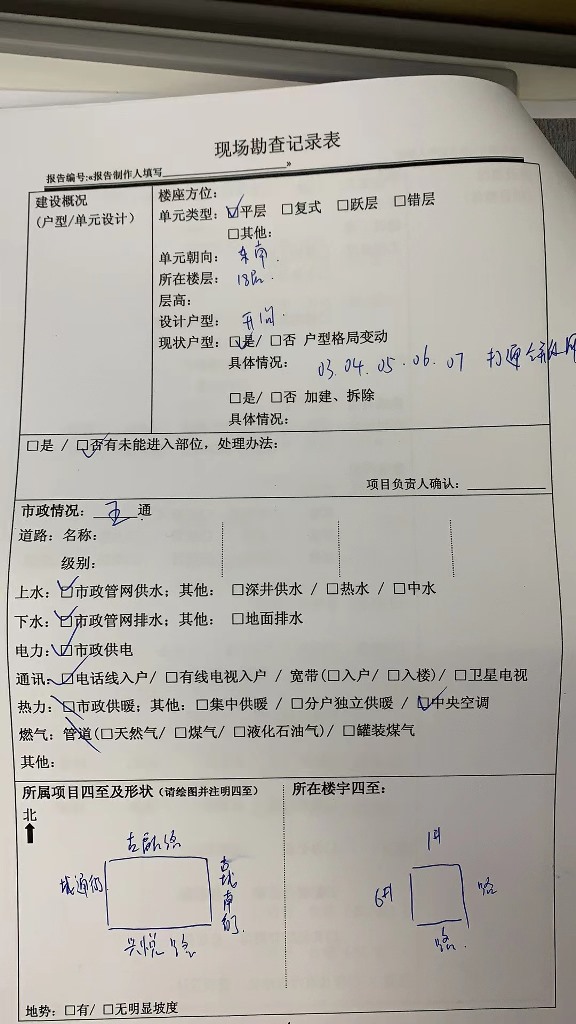 现场勘查记录表
报告编号:«报告制作人填写»
建设概况
(户型/单元设计)
楼座方位:
单元类型: ☑平层 □复式 □跃层 □错层
□其他:
单元朝向: 东南.
所在楼层: 18层.
层高:
设计户型: 开间.
现状户型: ☑是/ □否 户型格局变动
具体情况: 03.04.05.06.07 打通合并
□是/ □否 加建、拆除
具体情况:
□是 / ☑否有未能进入部位，处理办法:
项目负责人确认:
市政情况: 五 通
道路: 名称:
级别:
上水: ☑市政管网供水; 其他: □深井供水 / □热水 / □中水
下水: ☑市政管网排水; 其他: □地面排水
电力: ☑市政供电
通讯: ☑电话线入户/ □有线电视入户 / 宽带(□入户/ □入楼)/ □卫星电视
热力: □市政供暖; 其他: □集中供暖 / □分户独立供暖 / ☑中央空调
燃气: 管道(□天然气/ □煤气/ □液化石油气)/ □罐装煤气
其他:
所属项目四至及形状 (请绘图并注明四至)
所在楼宇四至:
北
城通街
兴悦路
1#
6#
路
路.
地势: □有/ □无明显坡度